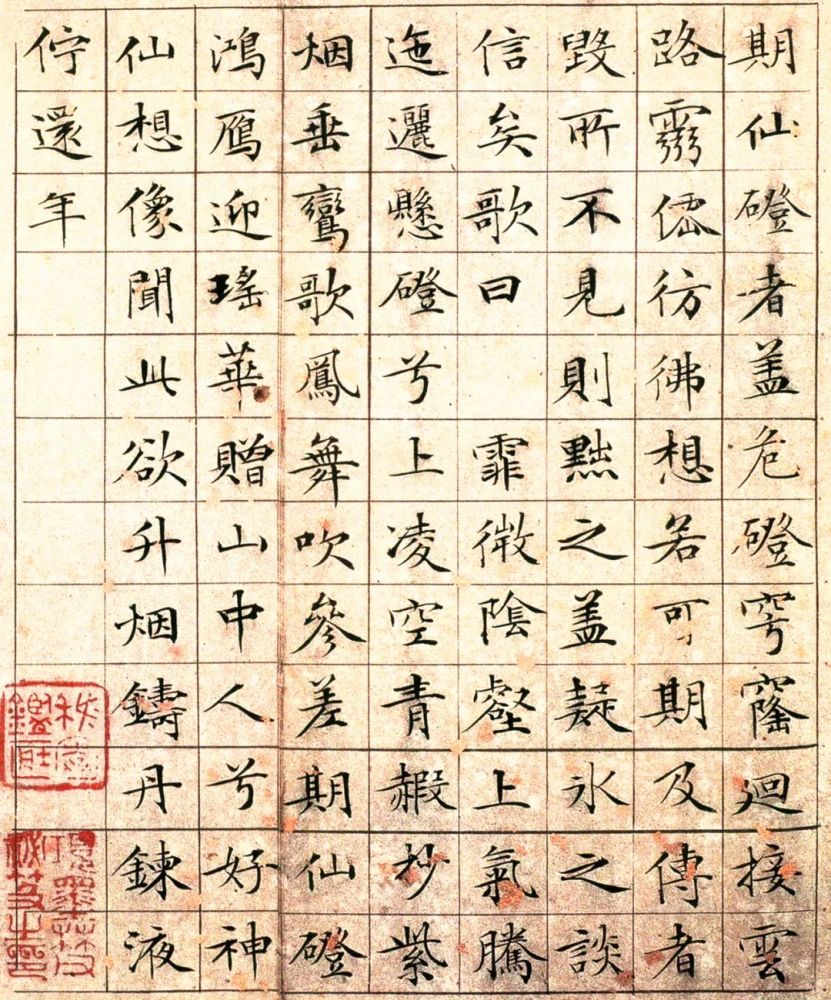 期仙磴者盖危磴穹窿迴接雲
路靈僊彷彿想若可期及傳者
毀所不見則黜之盖疑冰之談
信矣歌曰　霏微陰壑上氣騰
迤邐懸磴兮上凌空青赮杪紫
烟垂鸞歌鳳舞吹參差期仙磴
鴻鴈迎瑤華贈山中人兮好神
仙想像聞此欲升烟鑄丹鍊液
佇還年
項墨林父
秘笈之印